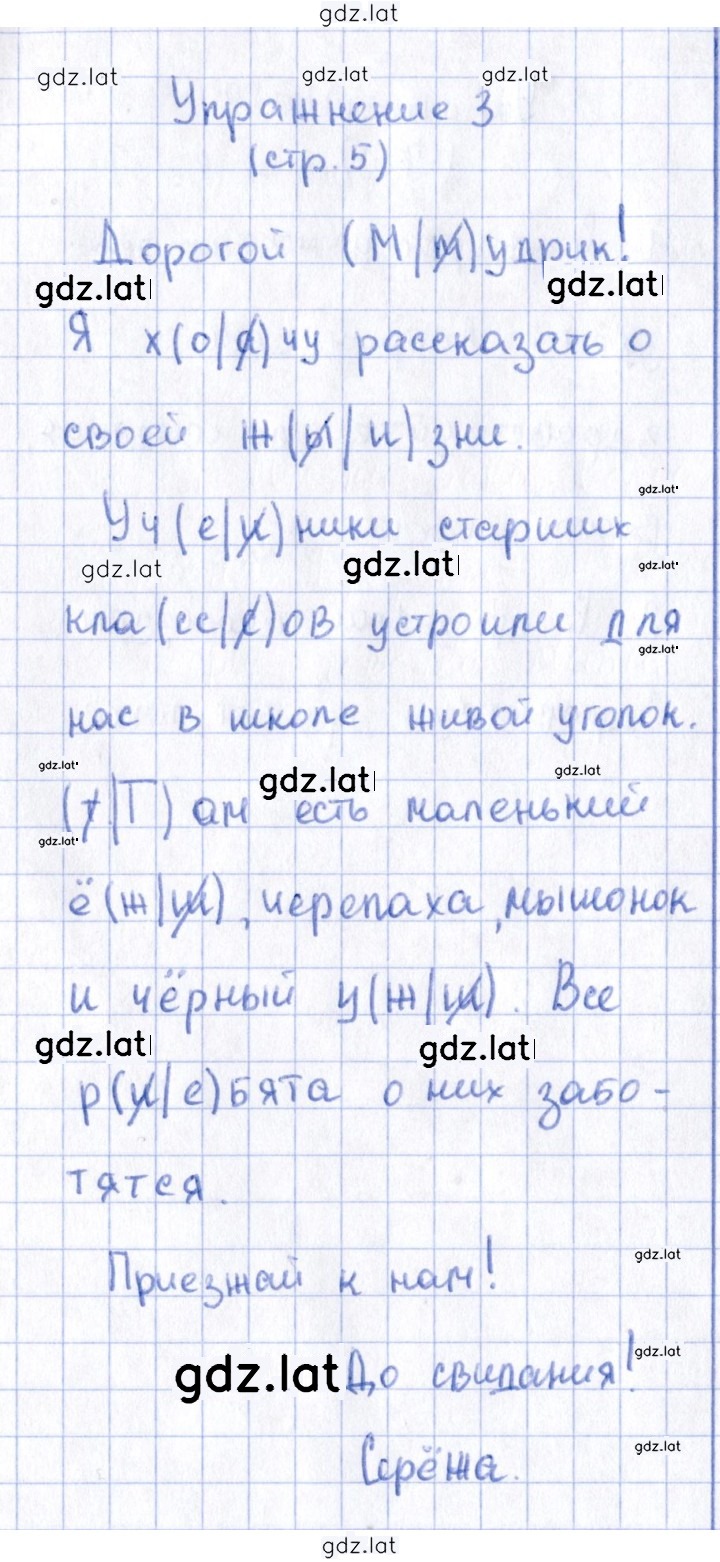 gdz.lat
gdz.lat gdz.lat gdz.lat
Упражнение 3
(стр. 5)
Дорогой (М/м)удрик!
gdz.lat gdz.lat
Я х(о/а)чу рассказать о
своей ж(ы/и)зни.
gdz.lat
Уч(е/и)ники старших
gdz.lat gdz.lat gdz.lat
кла(сс/с)ов устроили для
gdz.lat
нас в школе живой уголок.
gdz.lat gdz.lat gdz.lat
(т/Т)ам есть маленький
gdz.lat
ё(ж/ш), черепаха, мышонок
и чёрный у(ж/ш). Все
gdz.lat gdz.lat
р(и/е)бята о них забо-
тятся.
gdz.lat
Приезжай к нам!
gdz.lat
gdz.lat До свидания!
gdz.lat
Серёжа.
gdz.lat